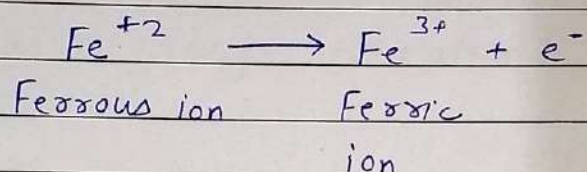 Fe⁺² ⟶ Fe³⁺ + e⁻
Ferrous ion Ferric
ion